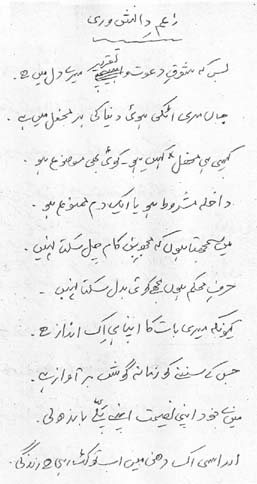 زعم دانش وری
بس کہ شوقِ دعوت و تقریر میرے دل میں ہے
جان میری اٹکی ہوئی دنیا کی ہر محفل میں ہے
کیسی ہی محفل کہیں ہو۔ کوئی بھی موضوع ہو
داخلہ مشروط ہو یا ایک دم ممنوع ہو
میں سمجھتا ہوں کہ مجھ بن کام چل سکتا نہیں
حرفِ محکم ہوں مجھے کوئی بدل سکتا نہیں ۔
کیونکہ میری بات کا اپنا ہی اک انداز ہے
جس کے سننے کو زمانہ گوش بر آواز ہے
میں نے خود اپنی نصیحت اپنے پلّے باندھ لی
اور اسی اک دھن میں اب تو کٹ رہی ہے زندگی